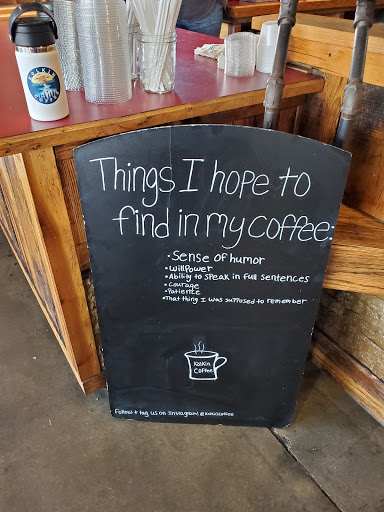 Things I hope to
find in my coffee:
• Sense of humor
• Willpower
• Ability to speak in full sentences
• Courage
• Patience
• That thing I was supposed to remember
KalKin
Coffee
Follow + tag us on Instagram!